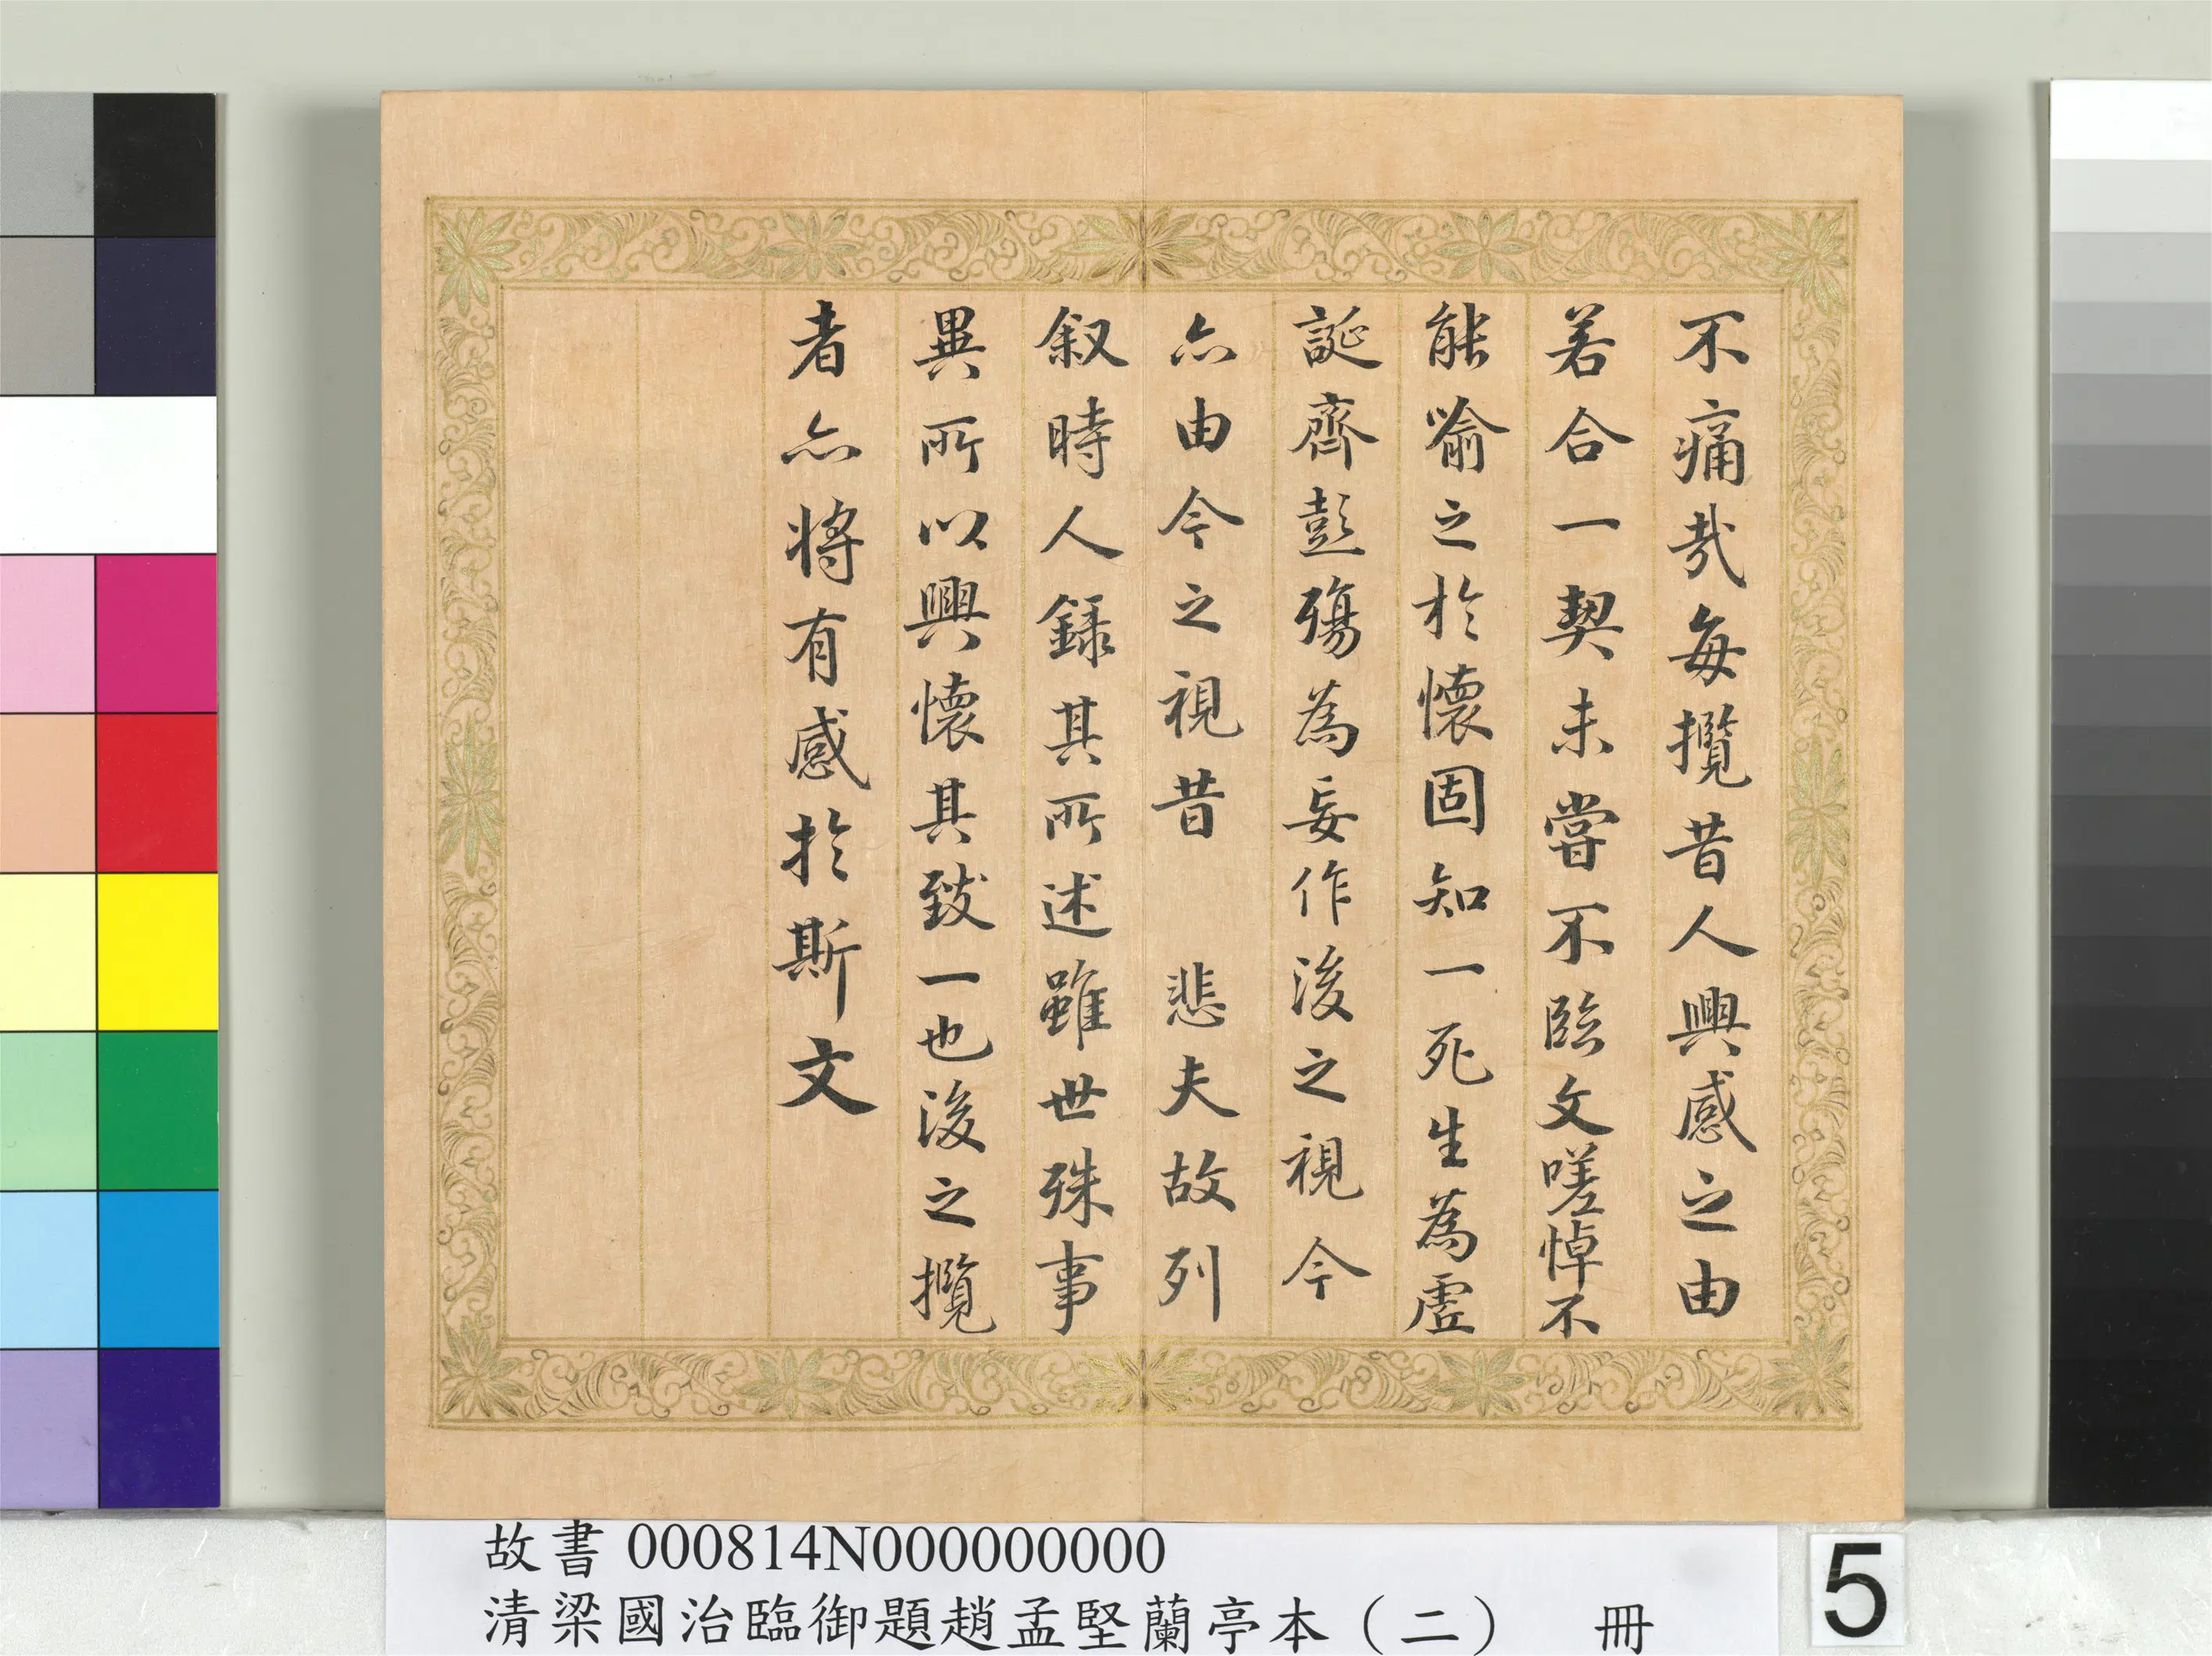 不痛哉每攬昔人興感之由
若合一契未嘗不臨文嗟悼不
能喻之於懷固知一死生為虛
誕齊彭殤為妄作後之視今
亦由今之視昔　悲夫故列
叙時人録其所述雖世殊事
異所以興懷其致一也後之攬
者亦將有感於斯文
故書 000814N000000000
清梁國治臨御題趙孟堅蘭亭本（二）　冊
5